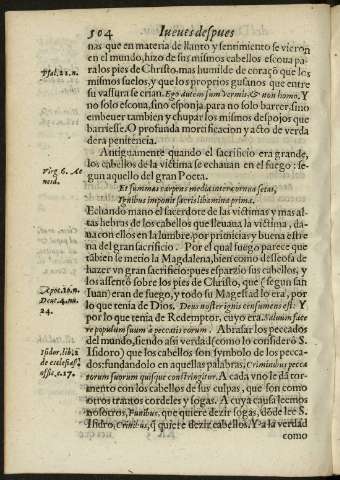 504 Iueues despues
nas que en materia de llanto y sentimiento se vieron
en el mundo, hizo de sus mismos cabellos escoua pa-
Psal. 21. n. ra los pies de Christo, mas humilde de coraçõ que los
mismos suelos, y que los proprios gusanos que entre
su vassura se crian. Ego autem sum vermis, & non homo. Y
no solo escoua, sino esponja, para no solo barrer, sino
embeuer tambien y chupar los mismos despojos que
barriesse. O profunda mortificacion y acto de verda
dera penitencia.
Antiguamente quando el sacrificio era grande,
Virg. 6. Ae los cabellos de la victima se echauan en el fuego: se-
neid. gun aquello del gran Poeta.
Et summas carpens media inter cornua setas,
Ignibus imponit sacris libamina prima.
Echando mano el sacerdote de las victimas y mas al
tas hebras de los cabellos que lleuaua la victima, da-
ua con ellos en la lumbre, por primicias y buena estre
na del gran sacrificio. Por el qual fuego parece que
tãbien se metio la Magdalena, bien como desseosa de
hazer vn gran sacrificio: pues esparzio sus cabellos, y
los assento sobre los pies de Christo, que (segun san
Apoc. 10. n. Iuan) eran de fuego, y todo su Magestad lo era, por
Deut. 4. nu. lo que tenia de Dios. Deus noster ignis consumens est. Y
24. por lo que tenia de Redemptor, cuyo era. Saluum face
re populum suum à peccatis eorum. Abrasar los peccados
del mundo, siendo assi verdad (como lo consideró S.
Isidor. lib. 2 Isidoro) que los cabellos son symbolo de los pecca-
de ecclesiast. dos: fundandolo en aquellas palabras, Criminibus pecca
offic. c. 17. torum suorum quisque constringitur. A cada vno le dá tor-
mento con los cabellos de sus culpas, que son como
otros trantos cordeles y sogas. A cuya causa leemos
nosotros, Funibus, que quiere dezir sogas, dõde lee S.
Isidro, Crinibus, q̃ quiere dezir cabellos. Y a la verdad
como